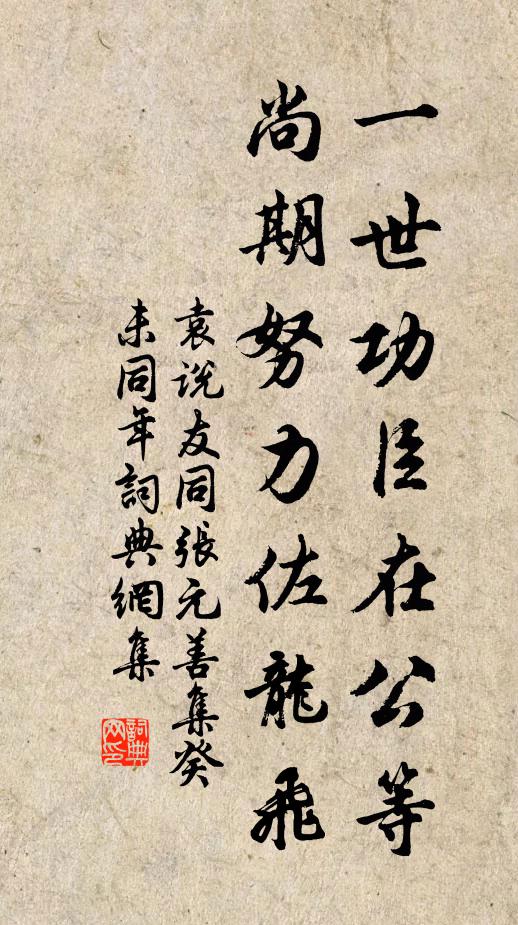 一世功臣在公等
尚期努力佐龍飛
袁說友同張元善集癸
未同年詞典網集
詞典網印